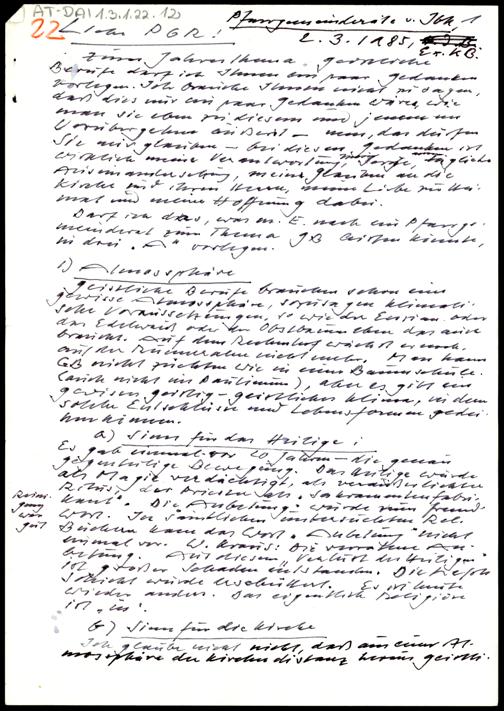 AT-DAI 1.3.1.22.12)
22
Pfarrgemeinderäte v. Ibk, 1
Liebe PGR!
2.3.1985,
Ev. KB.
Zum Jahresthema geistliche
Berufe darf ich Ihnen ein paar Gedanken
vorlegen. Ich brauche Ihnen nicht zu sagen,
daß dies nur ein paar Gedanken wären, wie
man sie eben zu diesem und jenem im
Vorübergehen äußert – nein, das dürfen
Sie mir glauben – bei diesen Gedanken ist
wirklich meine Verantwortung, meine Sorge, tägliche
Auseinandersetzung, meine Glauben an die
Kirche und ihren Herrn, meine Liebe zur Hei-
mat und meine Hoffnung dabei.
Darf ich das, was m. E. nach ein Pfarrge-
meinderat zum Thema GB leisten könnte,
in drei "A" vorlegen.
1) Atmosphäre
Geistliche Berufe brauchen schon eine
gewisse Atmosphäre, sozusagen klimati-
sche Voraussetzungen, so wie der Enzian oder
das Edelweiß oder der Obstbaum eben das auch
braucht. Auf dem wächst er auch,
auf der nicht mehr. Man kann
GB nicht züchten wie in einer Baumschule
(auch nicht im Paulinum), aber es gibt ein
gewisses geistig-geistliches Klima, in dem
solche Entschlüsse und Lebensformen gedei-
hen können.
a) Sinn für das Heilige:
Es gab einmal vor 20 Jahren – die genau
gegenteilige Bewegung. Das Heilige wurde
als Magie verdächtigt, als veräußerlichter
Ritus, der Priester als "Sakramentenfabri-
kant". Die Anbetung wurde zum Fremd-
wort. In sämtlichen untersuchten Rel.
Büchern kam das Wort "Anbetung" nicht
einmal vor. W. Kraus: Die verratene An-
betung. Aus diesem "Verlust des Heiligen"
ist großer Schaden entstanden. Die tiefste
Schicht wurde verschüttet. Es ist heute
wieder anders. Das eigentlich Religiöse
ist "in".
Reini-
gung
war
gut
b) Sinn für die Kirche
Ich glaube nicht nicht, daß aus einer At-
mosphäre der Kirchendistanz heraus geistli-